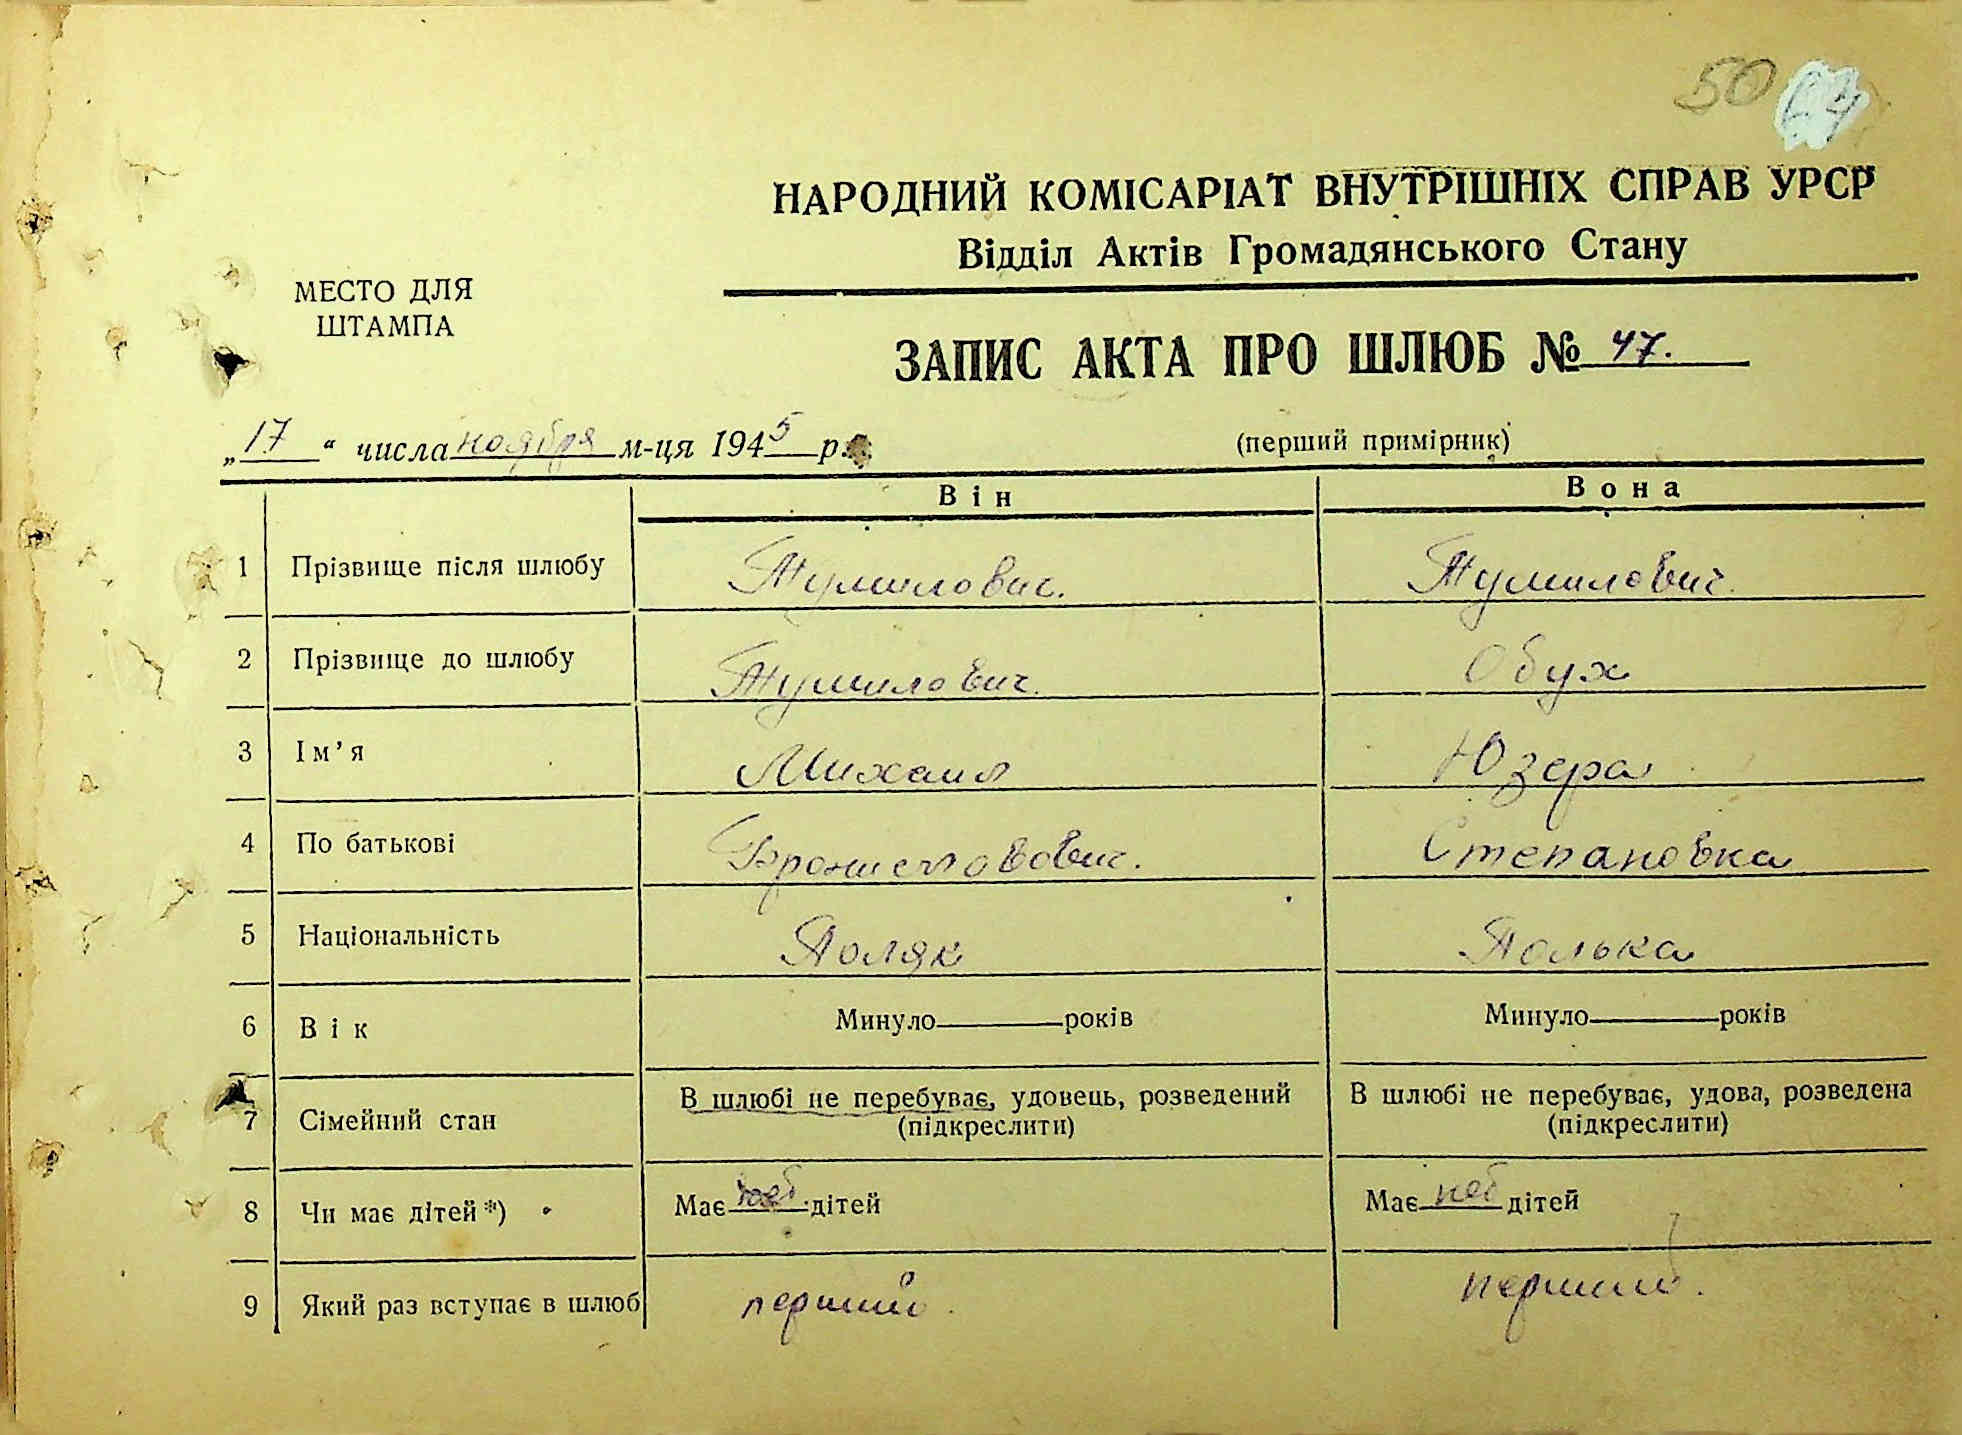 50
НАРОДНИЙ КОМІСАРІАТ ВНУТРІШНІХ СПРАВ УРСР
Відділ Актів Громадянського Стану
МЕСТО ДЛЯ
ШТАМПА
ЗАПИС АКТА ПРО ШЛЮБ № 47.
„17“ числа ноября м-ця 1945 р.
(перший примірник)
Він Вона
1 Прізвище після шлюбу Тумилович. Тумилович.
2 Прізвище до шлюбу Тумилович. Обух
3 Ім’я Михаил Юзефа
4 По батькові Брониславович. Степановна
5 Національність Поляк Полька
6 Вік Минуло років Минуло років
7 Сімейний стан В шлюбі не перебуває, удовець, розведений (підкреслити) В шлюбі не перебуває, удова, розведена (підкреслити)
8 Чи має дітей*) Має дітей Має дітей
9 Який раз вступає в шлюб первий. первий.